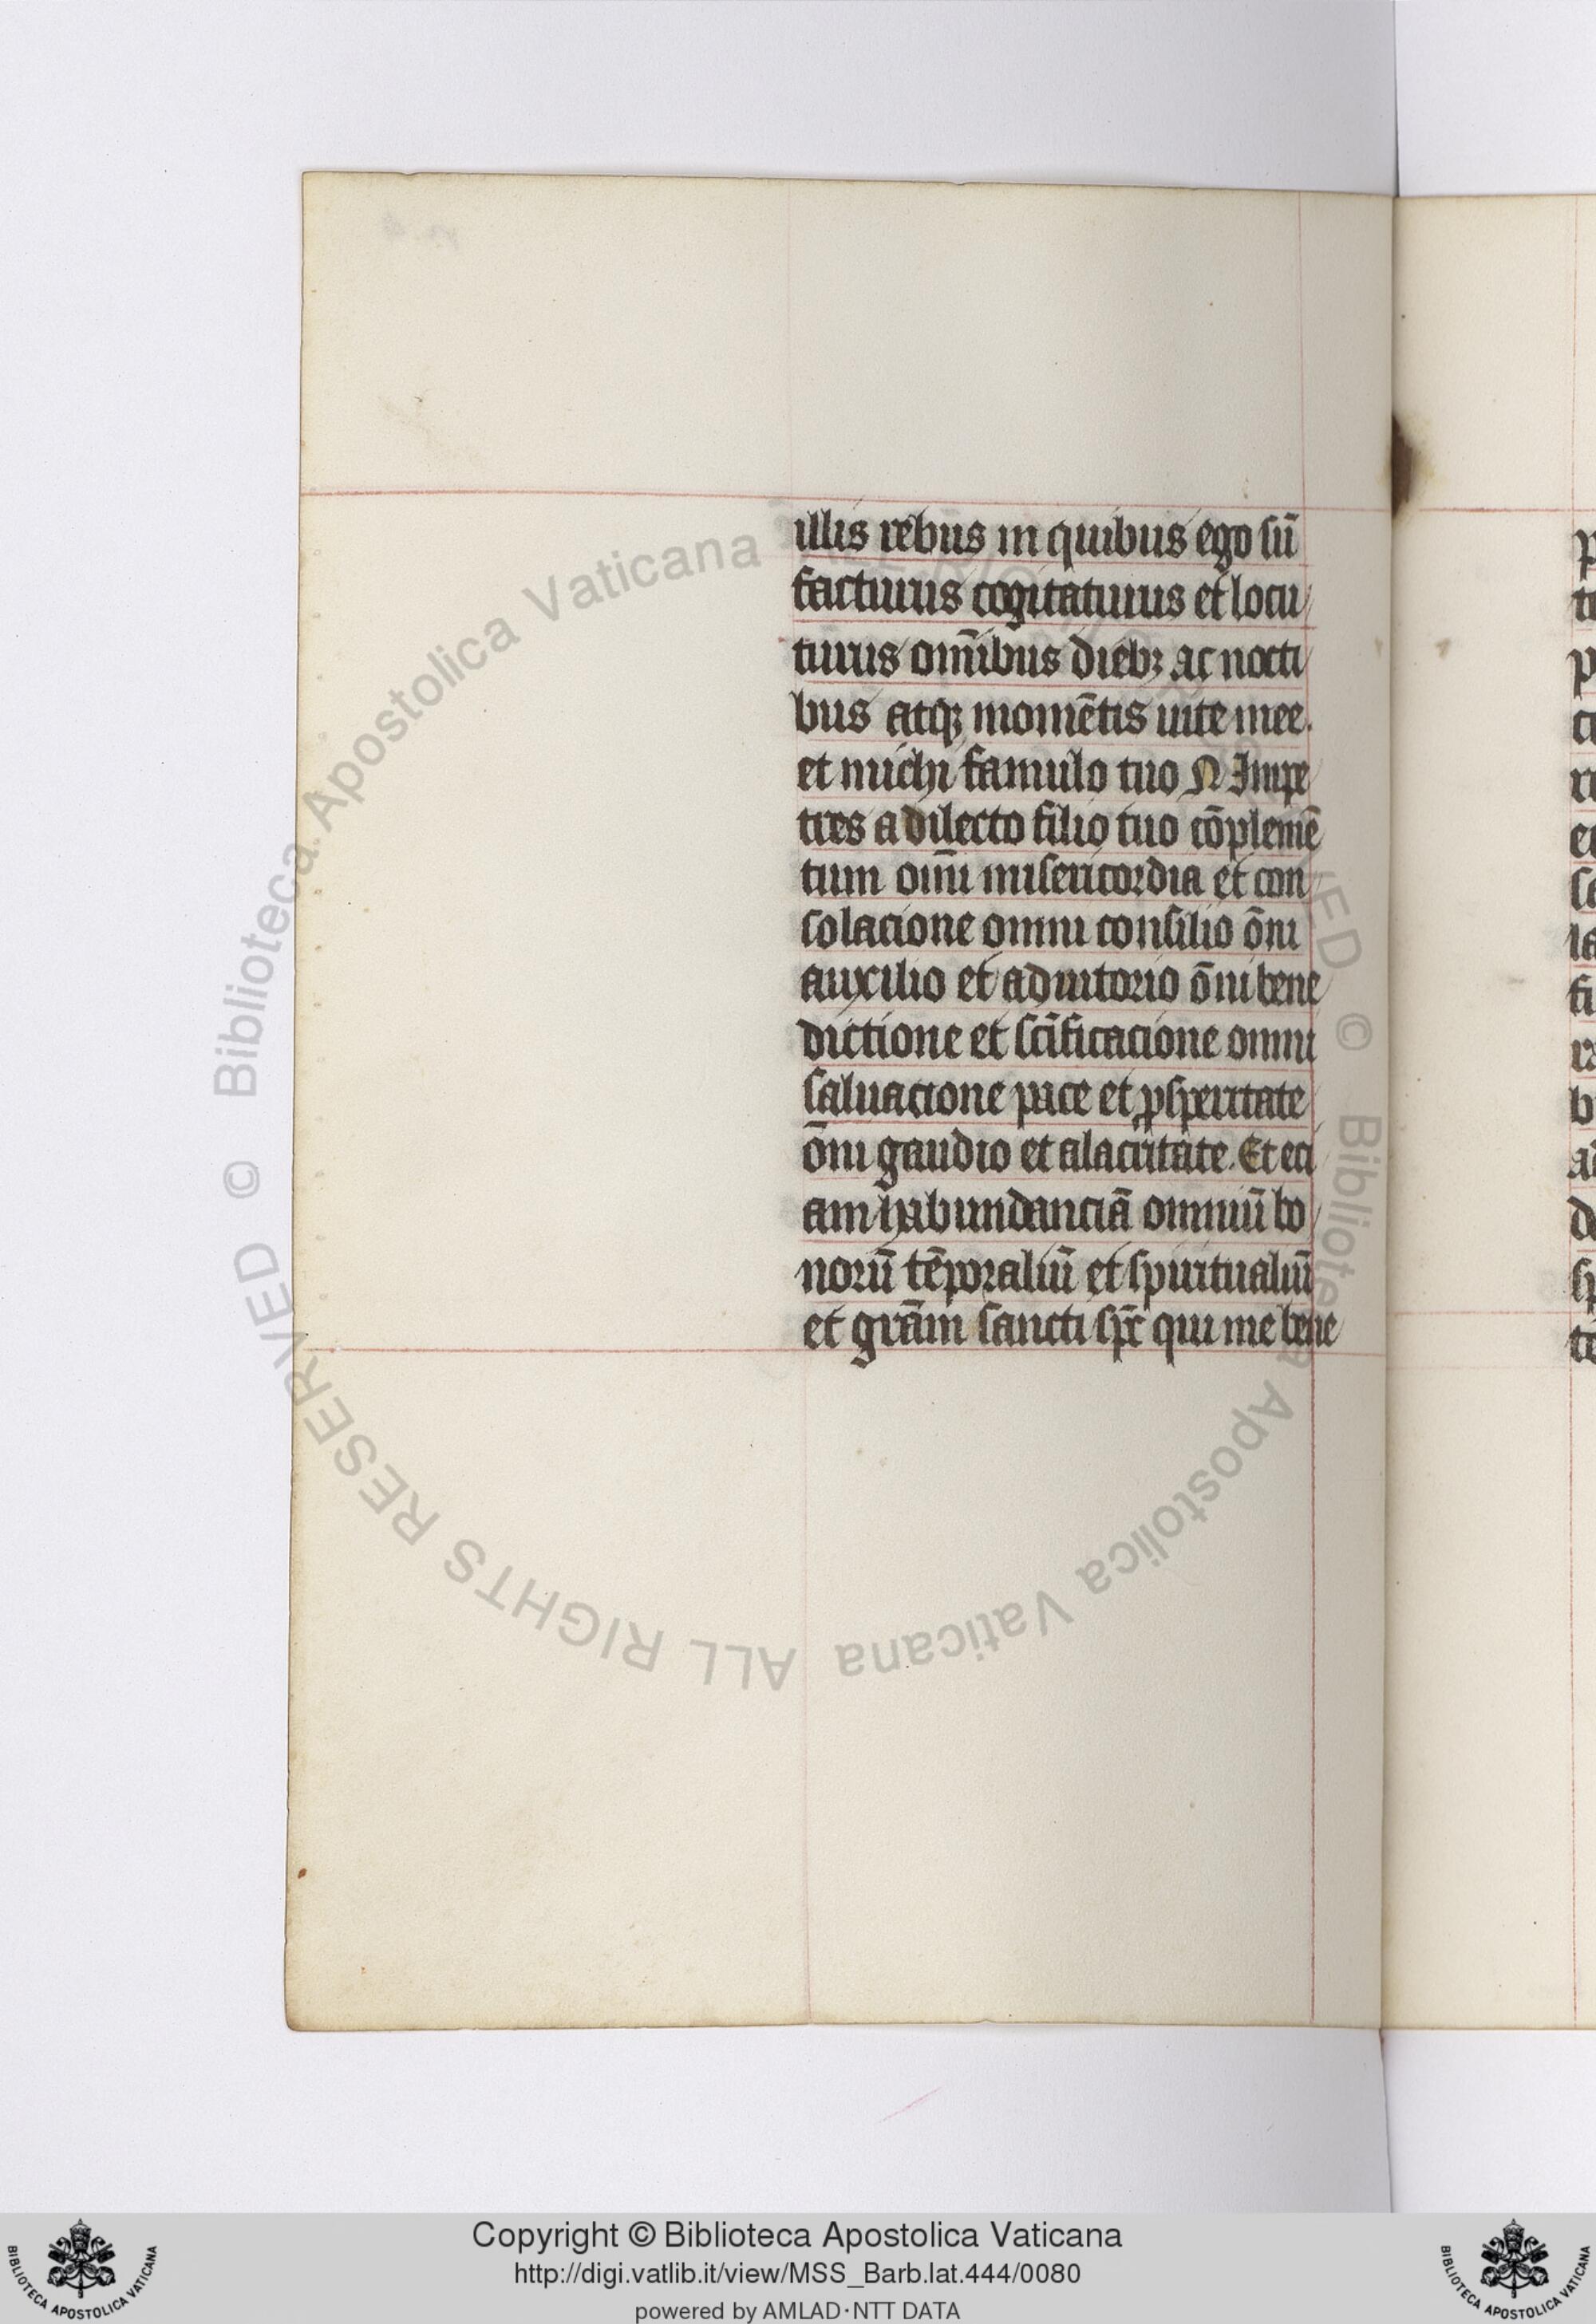 illis rebus in quibus ego sū
facturus cogitaturus et locu
turus om̄ibus dieb; ac nocti
bus atq; momētis uite mee.
et michi famulo tuo N Impe
tres a dilecto filio tuo cōplemē
tum om̄i misericordia et con
solacione omni consilio ōni
auxilio et adiutorio ōni bene
dictione et sc̄ificacione omni
saluacione pace et ꝓsperitate
ōni gaudio et alacritate. Et eci
am habundanciā omniū bo
norū tēporaliū et spiritualiū
et grām sancti sp̄c qui me bene
Biblioteca Apostolica Vaticana
ALL RIGHTS RESERVED ©
Biblioteca Apostolica Vaticana
Copyright © Biblioteca Apostolica Vaticana
http://digi.vatlib.it/view/MSS_Barb.lat.444/0080
powered by AMLAD·NTT DATA
BIBLIOTECA APOSTOLICA VATICANA
BIBLIOTECA APOSTOLICA VATICANA